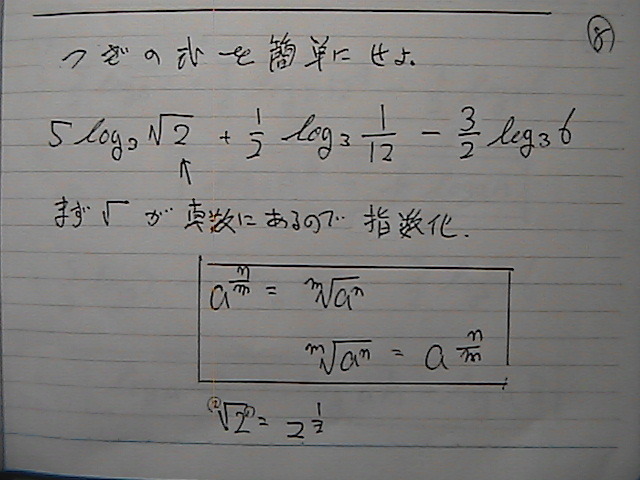 ⑧
つぎの式を簡単にせよ.
5 log₃ √2 + 1/2 log₃ 1/12 - 3/2 log₃ 6
↑
まず √ が真数にあるので 指数化.
a^(n/m) = ᵐ√aⁿ
ᵐ√aⁿ = a^(n/m)
⁽²⁾√2⁽¹⁾ = 2^(1/2)